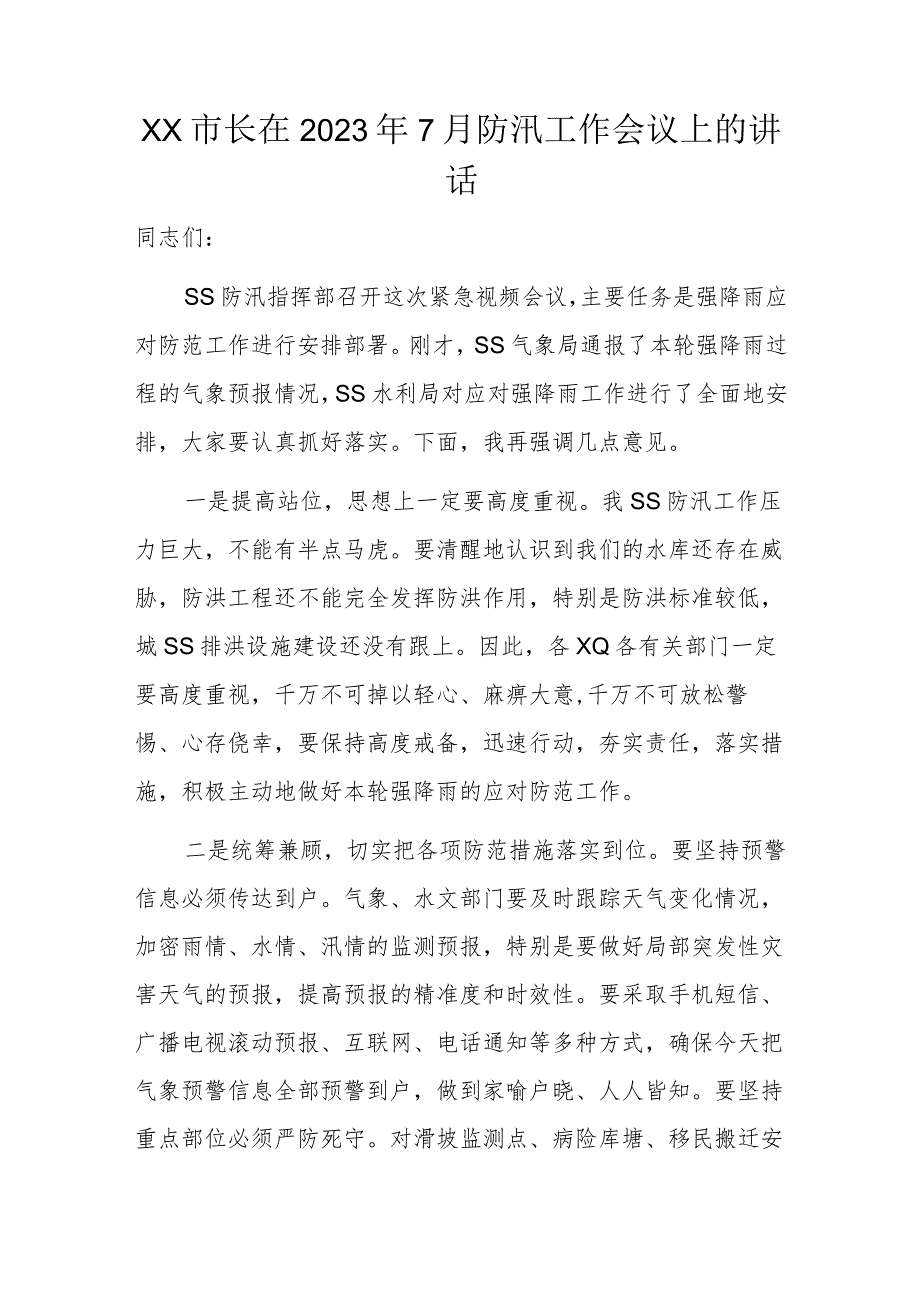 XX市长在2023年7月防汛工作会议上的讲
话
同志们：
SS防汛指挥部召开这次紧急视频会议,主要任务是强降雨应
对防范工作进行安排部署。刚才，SS气象局通报了本轮强降雨过
程的气象预报情况，SS水利局对应对强降雨工作进行了全面地安
排，大家要认真抓好落实。下面，我再强调几点意见。
一是提高站位，思想上一定要高度重视。我SS防汛工作压
力巨大，不能有半点马虎。要清醒地认识到我们的水库还存在威
胁，防洪工程还不能完全发挥防洪作用，特别是防洪标准较低，
城SS排洪设施建设还没有跟上。因此，各XQ各有关部门一定
要高度重视，千万不可掉以轻心、麻痹大意,千万不可放松警
惕、心存侥幸，要保持高度戒备，迅速行动，夯实责任，落实措
施，积极主动地做好本轮强降雨的应对防范工作。
二是统筹兼顾，切实把各项防范措施落实到位。要坚持预警
信息必须传达到户。气象、水文部门要及时跟踪天气变化情况，
加密雨情、水情、汛情的监测预报，特别是要做好局部突发性灾
害天气的预报，提高预报的精准度和时效性。要采取手机短信、
广播电视滚动预报、互联网、电话通知等多种方式，确保今天把
气象预警信息全部预警到户，做到家喻户晓、人人皆知。要坚持
重点部位必须严防死守。对滑坡监测点、病险库塘、移民搬迁安